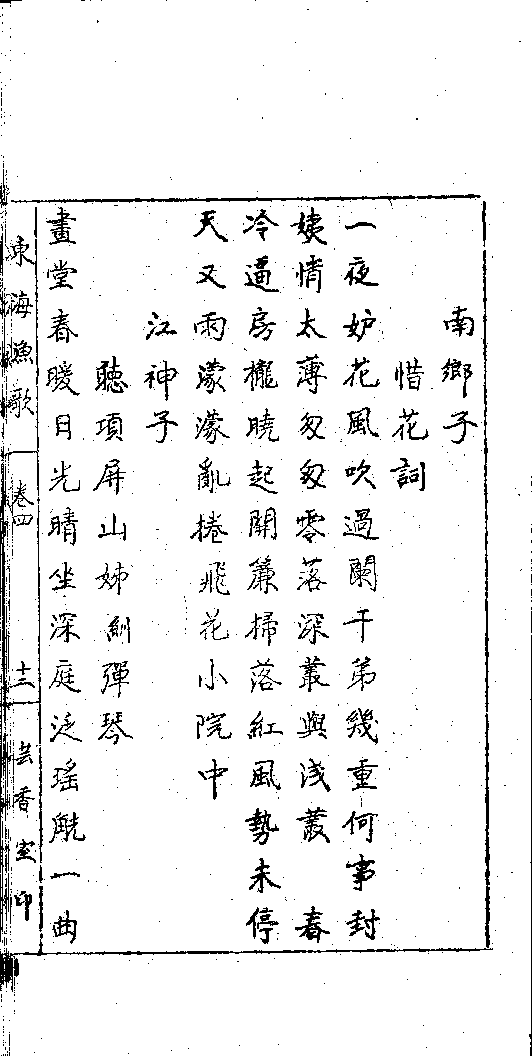 南鄉子
惜花詞
一夜妒花風吹過闌干第幾重何事封
姨情太薄匆匆零落深叢與淺叢　春
冷逼房櫳曉起開簾掃落紅風勢未停
天又雨濛濛亂捲飛花小院中
江神子
聽項屏山姊紃彈琴
畫堂春暖日光晴坐深庭泛瑤觥一曲
東海漁歌　卷四　十三　芸香室印